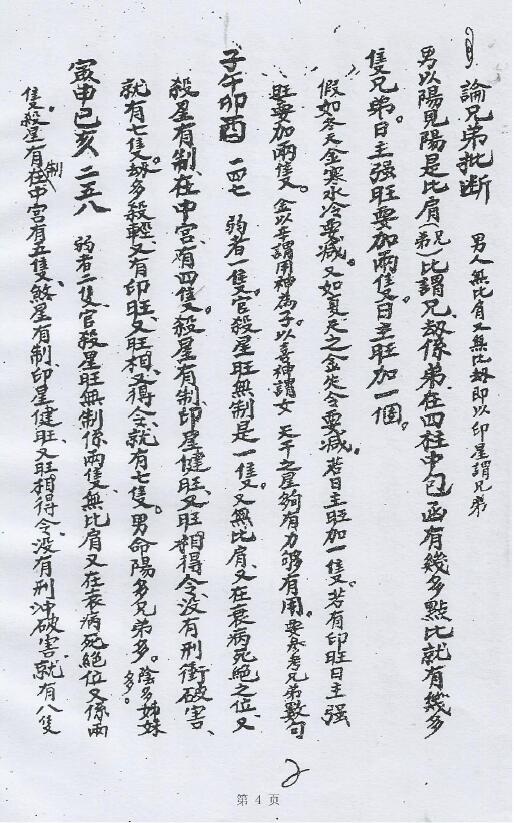 論兄弟批断　男人無比肩又無比劫即以印星謂兄弟
男以陽見陽是比肩（兄弟）比謂兄、劫係弟、在四柱中包函有幾多點比就有幾多
隻兄弟。日主强旺要加兩隻。日主旺加一個。
假如冬天金寒水冷要减。又如夏天之金失令要减。若日主旺加一隻。若有印旺日主强
旺要加兩隻。金以喜謂用神為子、以喜神謂女　天干之星夠有力够有用。要参考兄弟數句
子午卯酉　一四七　弱者一隻。官殺星旺無制是一隻。又無比肩、又在衰病死絕之位、又
殺星有制、在中宮、有四隻。殺星有制、印星健旺、又旺相得令、沒有刑衝破害、
就有七隻。劫多殺輕、又有印旺、又旺相、又得令、就有七隻。男命陽多兄弟多。陰多姊妹多。
寅申巳亥　二五八　弱者二隻官殺星旺無制係兩隻、無比肩又在衰病死絕位又係兩
隻。殺星有制在中宮有五隻、煞星有制、印星健旺、又旺相得令、沒有刑冲破害、就有八隻
2
第 4 页